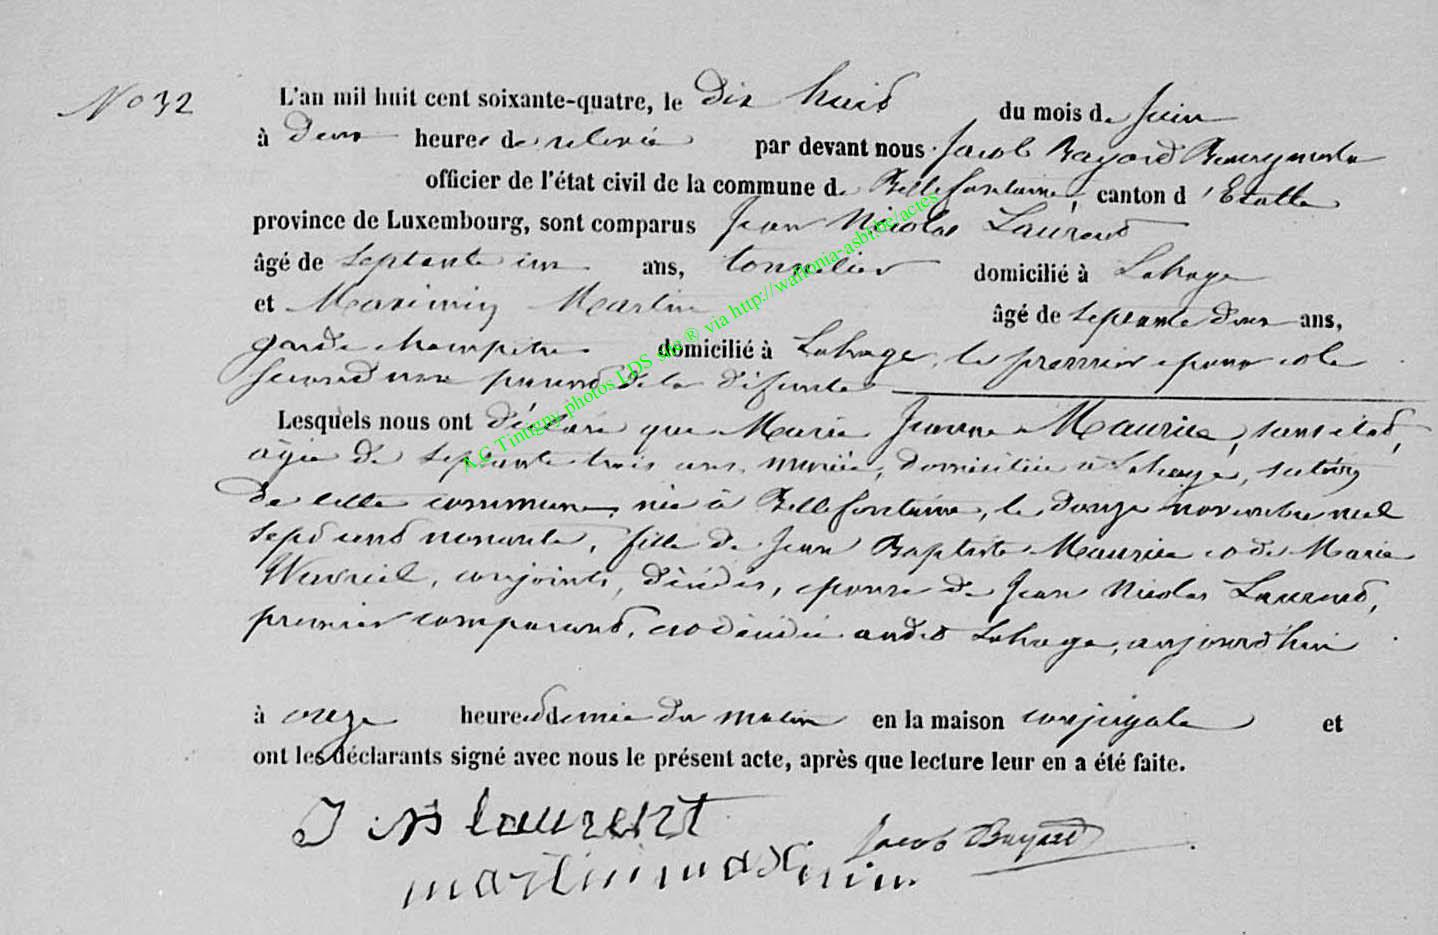 No 32
L'an mil huit cent soixante-quatre, le dix huit du mois de Juin
à deux heures de relevée par devant nous Jacob Bayard Bourgmestre
officier de l'état civil de la commune de Bellefontaine, canton d'Etalle
province de Luxembourg, sont comparus Jean Nicolas Laurent
âgé de septante un ans, tonnelier domicilié à Lahage
et Maximin Martin âgé de septante deux ans,
garde champêtre domicilié à Lahage, le premier epoux et le
second non parent de la défunte
Lesquels nous ont déclaré que Marie Jeanne Maurice, sans état,
âgée de septante trois ans, mariée, domiciliée à Lahage, section
de cette commune, née à Bellefontaine, le douze novembre mil
sept cent nonante, fille de Jean Baptiste Maurice et de Marie
conjoints, décédés, epouse de Jean Nicolas Laurent,
premier comparant, est décédée audit Lahage, aujourd'hui
à onze heures et demie du matin en la maison conjugale et
ont les déclarants signé avec nous le présent acte, après que lecture leur en a été faite.
J N laurent
Jacob Bayard
martin maximin
AC Tintigny photos LDS site ® via http://wallonia-asbl.be/actes